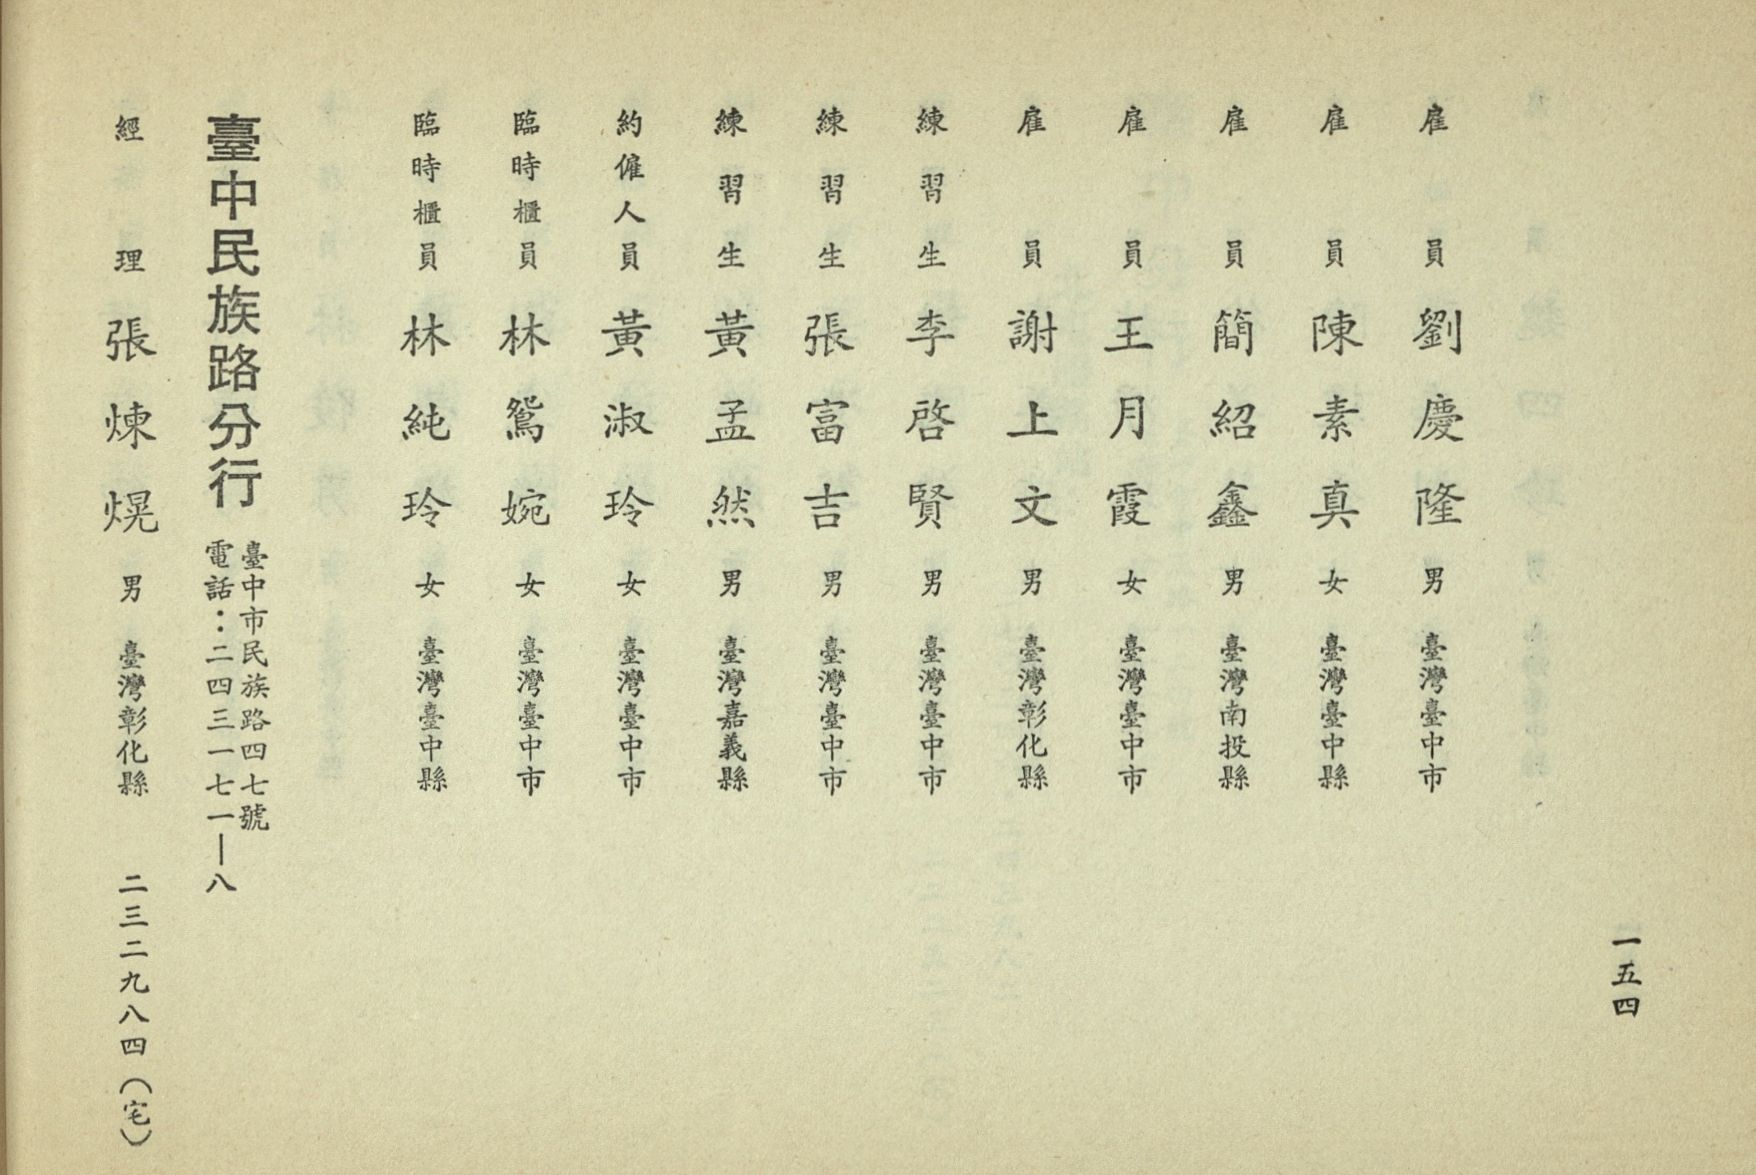 一五四
雇員 劉慶隆 男 臺灣臺中市
雇員 陳素真 女 臺灣臺中縣
雇員 簡紹鑫 男 臺灣南投縣
雇員 王月霞 女 臺灣臺中市
雇員 謝上文 男 臺灣彰化縣
練習生 李啓賢 男 臺灣臺中市
練習生 張富吉 男 臺灣臺中市
練習生 黃孟然 男 臺灣嘉義縣
約僱人員 黃淑玲 女 臺灣臺中市
臨時櫃員 林鴛婉 女 臺灣臺中市
臨時櫃員 林純玲 女 臺灣臺中縣
臺中民族路分行
臺中市民族路四七號
電話：二四三一七一—八
經理 張煉熀 男 臺灣彰化縣 二三二九八四（宅）